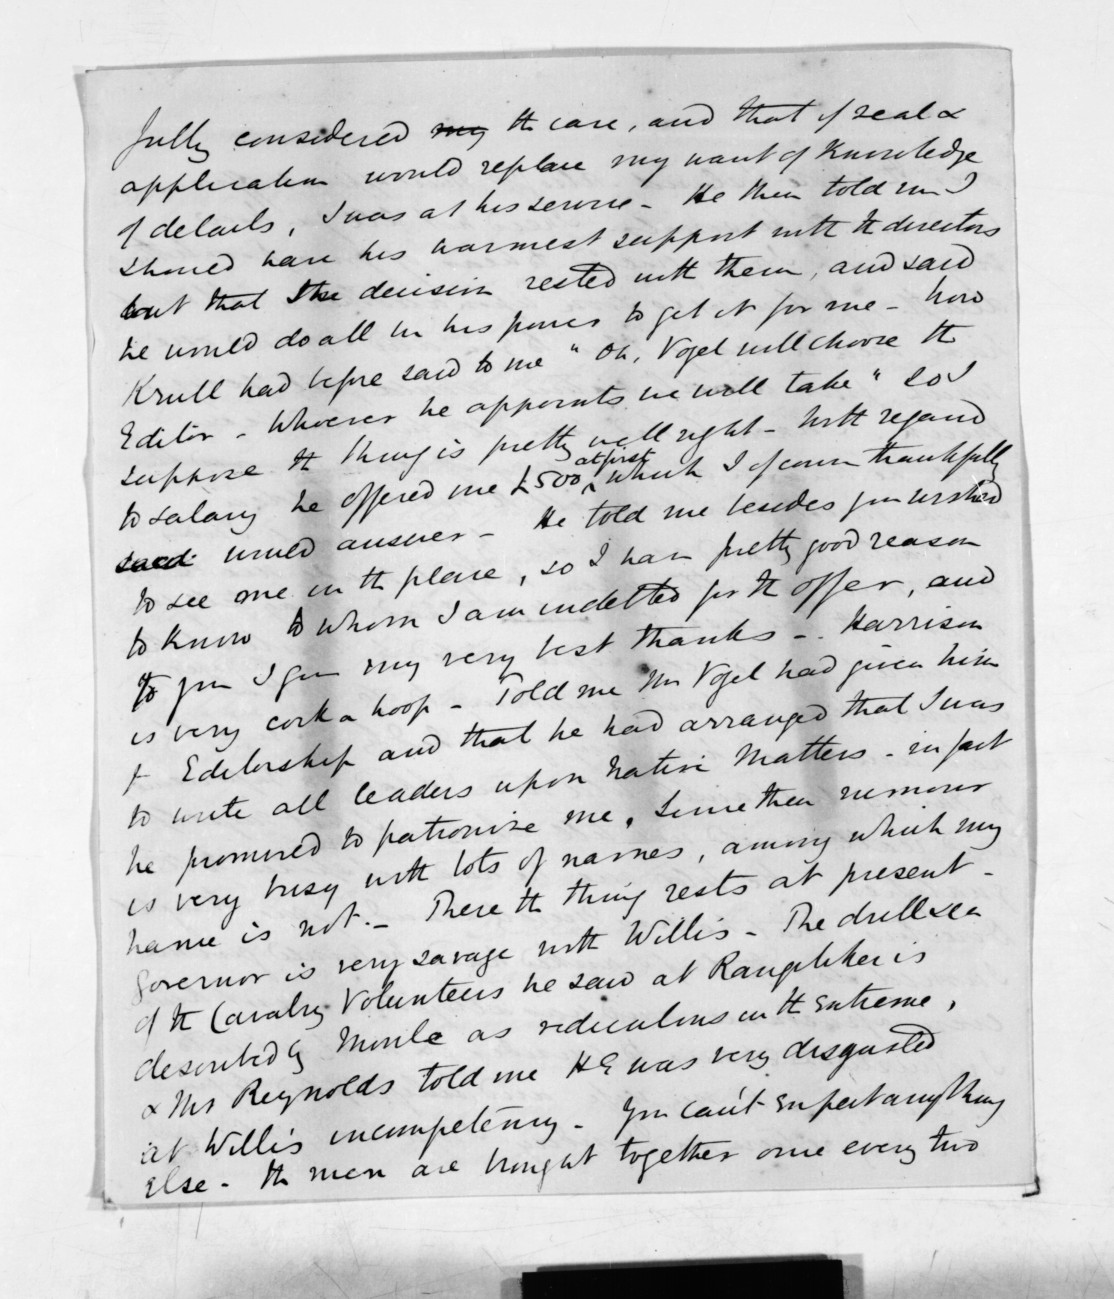 fully considered my th case, and that if zeal &
application would replace my want of knowledge
of details, I was at his service - He then told me I
should have his warmest support with th directors
but that the decision rested with them, and said
he would do all in his power to get it for me - now
Krull had before said to me "Oh, Vogel will choose the
Editor - Whoever he appoints we will take" so I
suppose th thing is pretty well right - With regard
to salary he offered me £500 at first which I of course thankfully
said would answer - He told me besides you wished
to see me in th place, so I have pretty good reason
to know to whom I am indebted for th offer, and
to you I give my very best thanks - Harrison
is very cock a hoop - Told me Mr Vogel had given him
t Editorship and that he had arranged that I was
to write all leaders upon Native Matters - in fact
he promised to patronise me. Since then rumour
is very busy with lots of names, among which my
name is not. - There th thing rests at present -
Governor is very savage with Willis - The drill seen
of th Cavalry Volunteers he saw at Rangitikei is
described by Moule as rediculous in th extreme,
& Mr Reynolds told me HE was very disgusted
at Willis incompetency - You can't expect anything
else - th men are brought together once every two